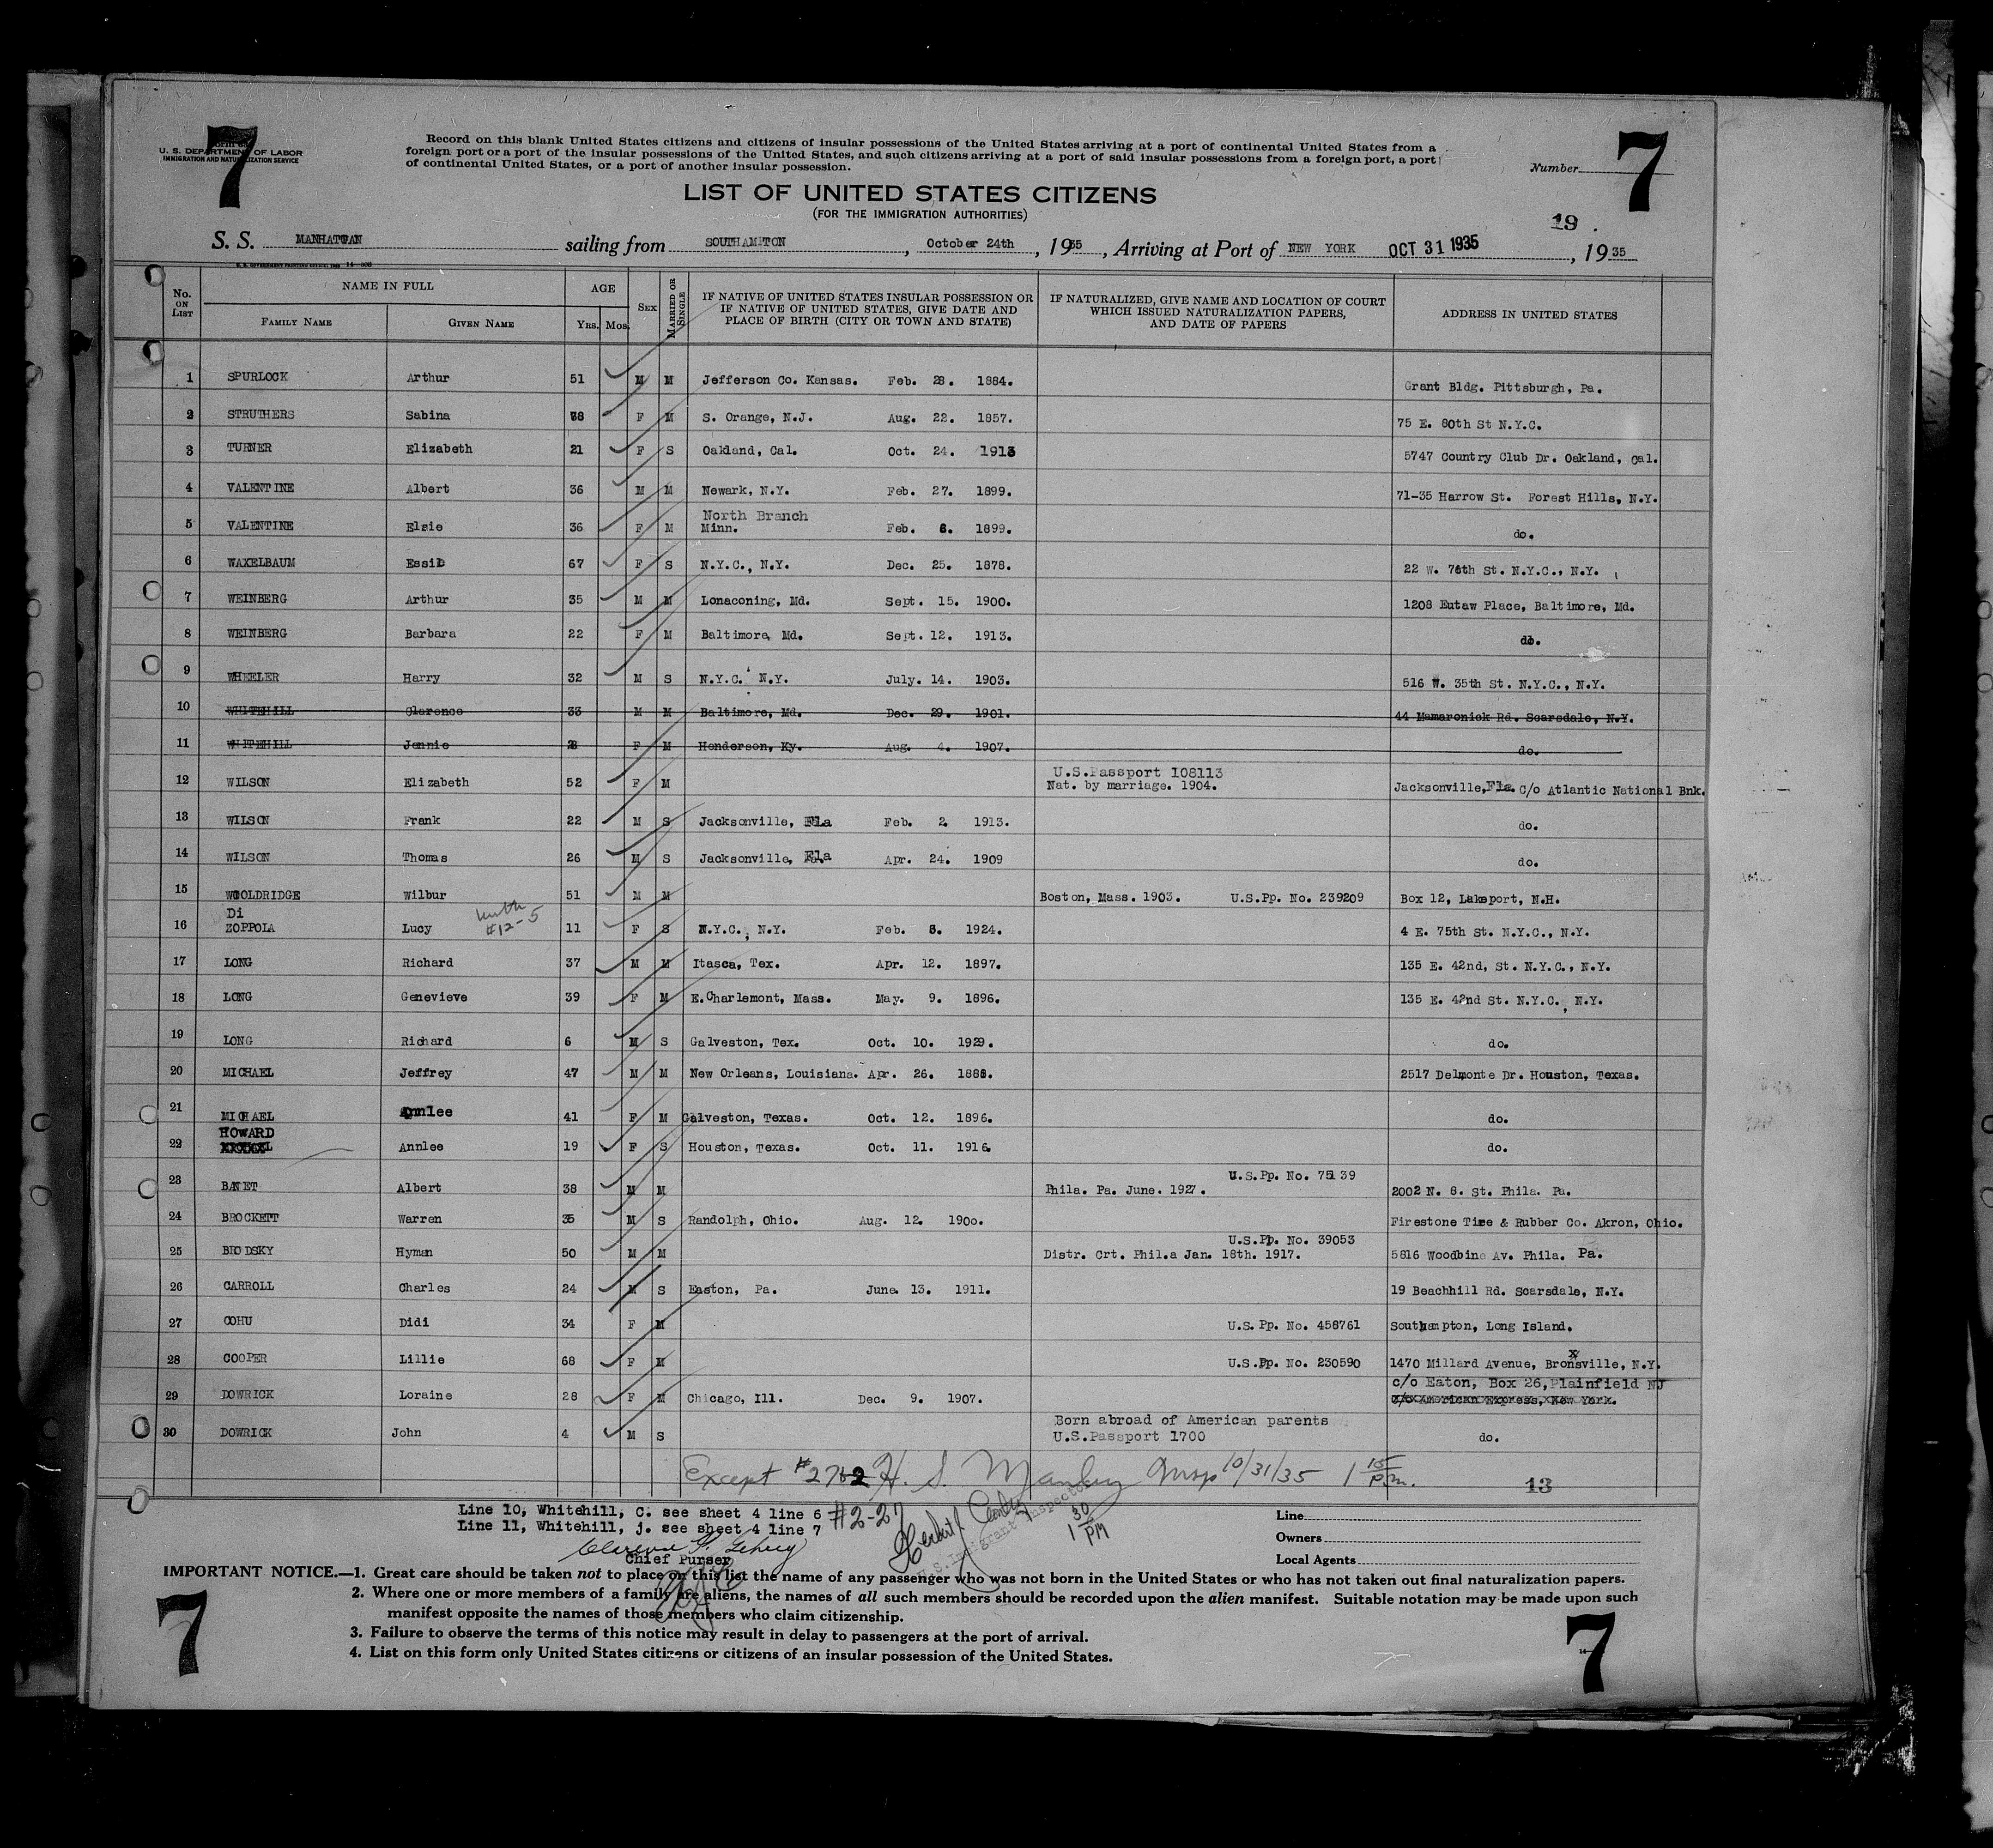 7
7
U. S. DEPARTMENT OF LABOR
IMMIGRATION AND NATURALIZATION SERVICE
Record on this blank United States citizens and citizens of insular possessions of the United States arriving at a port of continental United States from a
foreign port or a port of the insular possessions of the United States, and such citizens arriving at a port of said insular possessions from a foreign port, a port
of continental United States, or a port of another insular possession.
Number
LIST OF UNITED STATES CITIZENS
(FOR THE IMMIGRATION AUTHORITIES)
19 .
S. S. MANHATTAN sailing from SOUTHAMPTON, October 24th, 1935, Arriving at Port of NEW YORK OCT 31 1935, 1935
No. ON LIST NAME IN FULL AGE SEX MARRIED OR SINGLE IF NATIVE OF UNITED STATES INSULAR POSSESSION OR IF NATIVE OF UNITED STATES, GIVE DATE AND PLACE OF BIRTH (CITY OR TOWN AND STATE) IF NATURALIZED, GIVE NAME AND LOCATION OF COURT WHICH ISSUED NATURALIZATION PAPERS, AND DATE OF PAPERS ADDRESS IN UNITED STATES
FAMILY NAME GIVEN NAME Yrs. Mos.
1 SPURLOCK Arthur 51 M M Jefferson Co. Kansas. Feb. 28. 1884. Grant Bldg. Pittsburgh, Pa.
2 STRUTHERS Sabina 78 F M S. Orange, N.J. Aug. 22. 1857. 75 E. 80th St N.Y.C.
3 TURNER Elizabeth 21 F S Oakland, Cal. Oct. 24. 1913 5747 Country Club Dr. Oakland, Cal.
4 VALENTINE Albert 36 M M Newark, N.Y. Feb. 27. 1899. 71-35 Harrow St. Forest Hills, N.Y.
5 VALENTINE Elsie 36 F M North Branch Minn. Feb. 6. 1899. do.
6 WAXELBAUM Essie 67 F S N.Y.C., N.Y. Dec. 25. 1878. 22 W. 76th St. N.Y.C., N.Y.
7 WEINBERG Arthur 35 M M Lonaconing, Md. Sept. 15. 1900. 1208 Eutaw Place, Baltimore, Md.
8 WEINBERG Barbara 22 F M Baltimore, Md. Sept. 12. 1913. do.
9 WHEELER Harry 32 M S N.Y.C. N.Y. July. 14. 1903. 516 W. 35th St. N.Y.C., N.Y.
10 WHITEHILL Clarence 33 M M Baltimore, Md. Dec. 29. 1901. 44 Mamaronick Rd. Scarsdale, N.Y.
11 WHITEHILL Jennie 28 F M Henderson, Ky. Aug. 4. 1907. do.
12 WILSON Elizabeth 52 F M U.S.Passport 108113 Nat. by marriage. 1904. Jacksonville, Fla. C/o Atlantic National Bnk.
13 WILSON Frank 22 M S Jacksonville, Fla Feb. 2. 1913. do.
14 WILSON Thomas 26 M S Jacksonville, Fla Apr. 24. 1909 do.
15 WOOLDRIDGE Wilbur 51 M M Boston, Mass. 1903. U.S.Pp. No. 239209 Box 12, Lakeport, N.H.
16 Di ZOPPOLA Lucy with #12-5 11 F S N.Y.C., N.Y. Feb. 6. 1924. 4 E. 75th St. N.Y.C., N.Y.
17 LONG Richard 37 M M Itasca, Tex. Apr. 12. 1897. 135 E. 42nd, St. N.Y.C., N.Y.
18 LONG Genevieve 39 F M E.Charlemont, Mass. May. 9. 1896. 135 E. 42nd St. N.Y.C., N.Y.
19 LONG Richard 6 M S Galveston, Tex. Oct. 10. 1929. do.
20 MICHAEL Jeffrey 47 M M New Orleans, Louisiana. Apr. 26. 1888. 2517 Delmonte Dr. Houston, Texas.
21 MICHAEL Annlee 41 F M Galveston, Texas. Oct. 12. 1896. do.
22 HOWARD Annlee 19 F S Houston, Texas. Oct. 11. 1916. do.
23 BANET Albert 38 M M Phila. Pa. June. 1927. U.S.Pp. No. 75139 2002 N. 8. St. Phila. Pa.
24 BROCKETT Warren 35 M S Randolph, Ohio. Aug. 12. 1900. Firestone Tire & Rubber Co. Akron, Ohio.
25 BRODSKY Hyman 50 M M Distr. Crt. Phil.a Jan. 18th. 1917. U.S.Pp. No. 39053 5816 Woodbine Av. Phila. Pa.
26 CARROLL Charles 24 M S Easton, Pa. June. 13. 1911. 19 Beachhill Rd. Scarsdale, N.Y.
27 COHU Didi 34 F M U.S.Pp. No. 458761 Southampton, Long Island.
28 COOPER Lillie 68 F M U.S.Pp. No. 230590 1470 Millard Avenue, Bronxville, N.Y.
29 DOWRICK Loraine 28 F M Chicago, Ill. Dec. 9. 1907. c/o Eaton, Box 26, Plainfield NJ
c/o American Express, New York.
30 DOWRICK John 4 M S Born abroad of American parents U.S.Passport 1700 do.
Except #27 & 2 H. S. Manley Insp 10/31/35 1 15 P.m.
13
Line 10, Whitehill, C. see sheet 4 line 6 #2-27
Line 11, Whitehill, j. see sheet 4 line 7
1 30 PM
U.S. Immigrant Inspector
Chief Purser
Line
Owners
Local Agents
IMPORTANT NOTICE.—1. Great care should be taken not to place on this list the name of any passenger who was not born in the United States or who has not taken out final naturalization papers.
2. Where one or more members of a family are aliens, the names of all such members should be recorded upon the alien manifest. Suitable notation may be made upon such
manifest opposite the names of those members who claim citizenship.
3. Failure to observe the terms of this notice may result in delay to passengers at the port of arrival.
4. List on this form only United States citizens or citizens of an insular possession of the United States.
7
7